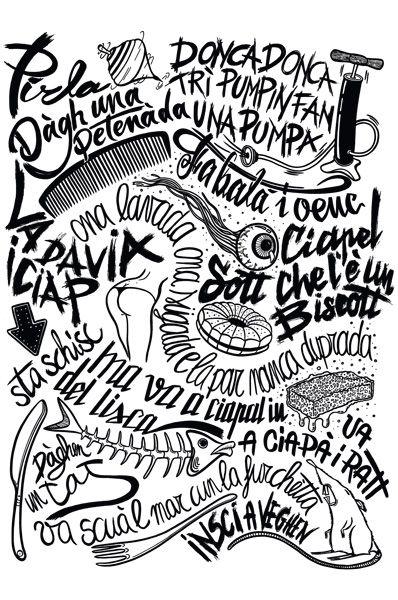 Pirla
DONCA DONCA
TRÌ PUMPIN FAN
UNA PUMPA
Dàgh una
petenàda
i oeuc
LA DAVIA
i CIÀP
ona lavada ona sugada e la par nanca duprada
Ciapel
Sott che l'è un
Biscott
sta schisc
ma va a ciapal in
del lisca
VA
A CIAPÀ i RATT
Dàghen
un TAJ
va scuàl mar cun la furchetta
INSCÌ A VEGHEN